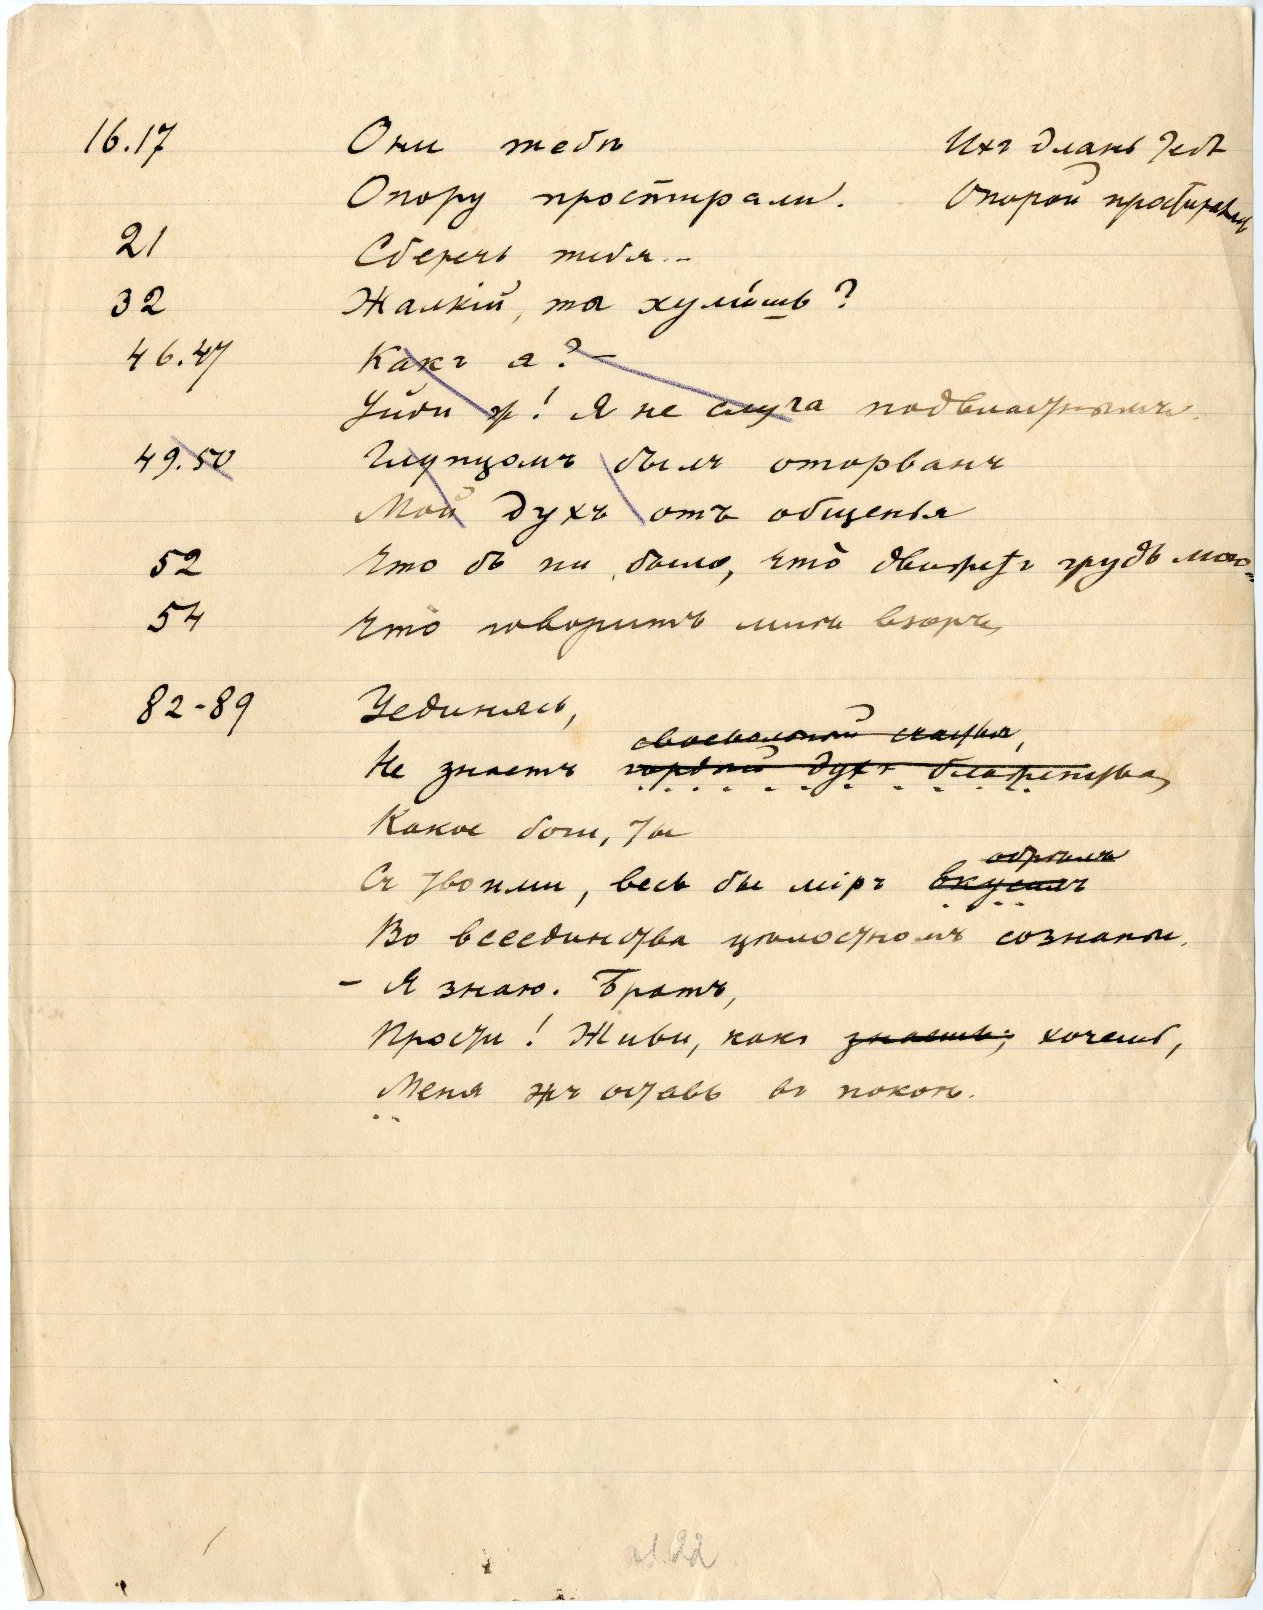 16.17 Они тебѣ Ихъ длань тебѣ
Опору простирали. Опорой простиралась
21 Сберечь тебя...
32 Жалкій, то хулишь?
46.47 Какъ я? –
Уйди ж! Я не слуга подвластнымъ.
49.50 Глупцомъ былъ оторванъ
Мой духъ отъ общенья
52 Что бъ ни было, что́ движетъ грудь мою,
54 Что́ говоритъ мнѣ взоръ,
82-89 Уединясь,
своевольной счастья,
Не знаетъ гордый духъ блаженства,
Какое боги, ты
обрѣлъ
Съ твоими, весь бы міръ вкусилъ
Во всеединства цѣлостномъ сознаньи.
– Я знаю. Братъ,
Прости! Живи, какъ знаешь; хочешь,
Меня жъ оставь въ покоѣ.
л.22